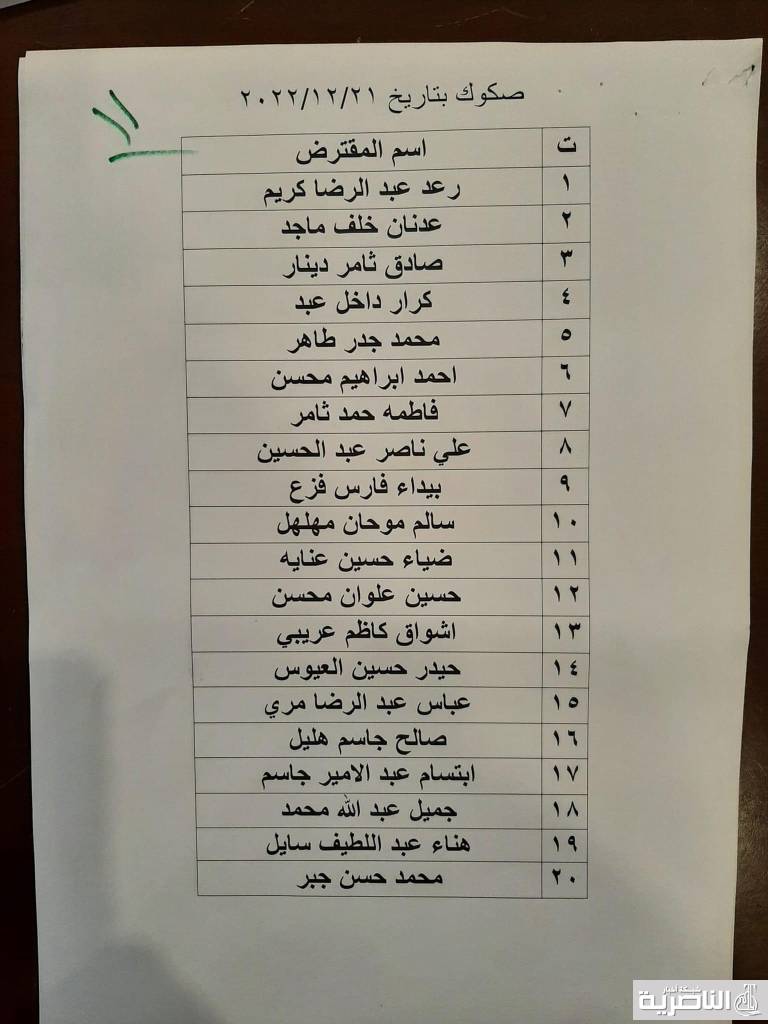 صكوك بتاريخ ٢٠٢٢/١٢/٢١
ت اسم المقترض
١ رعد عبد الرضا كريم
٢ عدنان خلف ماجد
٣ صادق ثامر دينار
٤ كرار داخل عبد
٥ محمد جدر طاهر
٦ احمد ابراهيم محسن
٧ فاطمه حمد ثامر
٨ علي ناصر عبد الحسين
٩ بيداء فارس فزع
١٠ سالم موحان مهلهل
١١ ضياء حسين عنايه
١٢ حسين علوان محسن
١٣ اشواق كاظم عريبي
١٤ حيدر حسين العيوس
١٥ عباس عبد الرضا مري
١٦ صالح جاسم هليل
١٧ ابتسام عبد الامير جاسم
١٨ جميل عبد الله محمد
١٩ هناء عبد اللطيف سايل
٢٠ محمد حسن جبر
شبكة أخبار
الناصرية